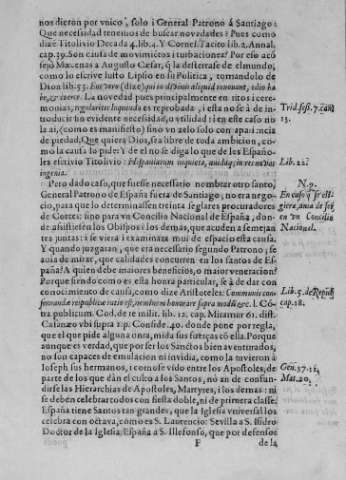 nos dieron por vnico, solo i General Patrono á Santiago:
Que necessidad tenemos de buscar novedades? Pues como
dize Titolivio Decada 4. lib. 4. Y Cornel. Tacito lib. 2. Annal.
cap. 39. Son causa de movimiẽtos i turbaciones? Por eso acõ
sejó Mæcenas a Augusto Cæsar, q̃ la desterrase de el mundo,
como lo escrive Iusto Lipsio en su Politica, tomandolo de
Dion lib. 53. Eos vero (dize) qui in divinis aliquid innovant, odio ha
be, & coerce. La novedad pues principalmente en ritos i cere-
monias, regulariter loquendo es reprobada, i esta no se á de in-
troducir ho evidente necessidad, o vtilidad: i en este caso no
la ai, (como es manifiesto) sino vn zelo solo con aparien-
cia de piedad. Que quiera Dios, sea libre de toda ambicion, co-
mo la causa lo pide: i de el no se diga lo que de les Españo-
les escrivio Titolivio: Hispanorum inquieta, avidaq; in res novas
ingenia.
Pero dado caso, que fuesse necessario nombrar otro santo,
General Patrono de España fuera de Santiago, no era nego-
cio, para que lo determinassen treinta seglares procuradores
de Cortes: sino para vn Concilio Nacional de España, don-
de assistiessen los Obispos i los demas, que acuden a semejan
tes juntas: i se viera i examinara mui de espacio esta causa.
Y quando juzgaran, que era necessario segundo Patrono; se
avia de mirar, que calidades concurren en los santos de Es-
paña? A quien debe maiores beneficios, o maior veneracion?
Porque siendo como es ella honra particular, se á de dar con
conocimiento de causa, como dize Aristoteles: Communis con-
servandæ reipublicæ ratio est, neminem honorare supra modũ &c. l. Có
tra publicum. Cod. de re milit. lib. 12. cap. Miramur 61. dist.
Catanæo vbi supra 2. p. Conside. 40. donde pone por regla,
que el que pide alguna onra, mida sus fuerças có ella. Porque
aunque es verdad, que por ser los Sanctos bien aventurados,
no son capaces de emulacion ni invidia, como la tuvieron á
Ioseph sus hermanos, i como se vido entre los Apostoles, de
parte de los que dan el culto a los Santos, no án de confun-
dirse las Hierarchias de Apostoles, Martyres, i los demas: ni
se deben celebrar todos con fiesta doble, ni de primera classe.
España tiene Santos tan grandes, que la Iglesia vniversal los
celebra con octava, como es S. Laurencio: Sevilla á S. Isidro
Doctor de la Iglesia España á S. Illefonso, que por defensor
F de la
Trid. sess. 7. can
13.
Lib. 22.
N. 9.
En caso q̃ se eli
giera, avia de ser
en vn Concilio
Nacional.
Lib. 5. de Repub
cap. 18.
Gen. 37. 11.
Mat. 20.